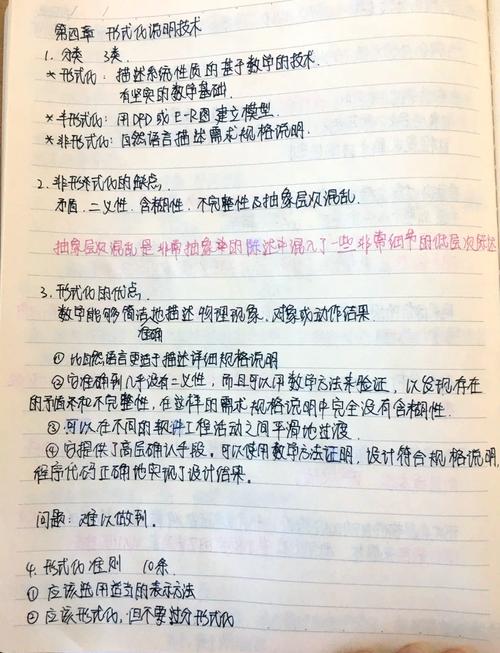 第四章 形式化说明技术
1. 分类 3类
* 形式化: 描述系统性质的基于数学的技术.
有坚实的数学基础.
* 半形式化: 用DFD或E-R图建立模型.
* 非形式化: 自然语言描述需求规格说明.
2. 非形式化的缺点.
矛盾. 二义性. 含糊性. 不完整性及抽象层次混乱.
抽象层次混乱是非常抽象的陈述中混入了一些非常细节的低层次陈述
3. 形式化的优点.
数学能够简洁地描述物理现象. 对象或动作结果.
准确
① 比自然语言更适于描述详细规格说明
② 它准确到几乎没有二义性, 而且可以用数学方法来验证, 以发现存在
的矛盾和不完整性, 在这样的需求规格说明中完全没有含糊性.
③ 可以在不同的软件工程活动之间平滑地过渡
④ 它提供了高层确认手段. 可以使用数学方法证明, 设计符合规格说明,
程序代码正确地实现了设计结果.
问题: 难以做到.
4. 形式化准则 10条.
① 应该选用适当的表示方法
② 应该形式化, 但不要过分形式化